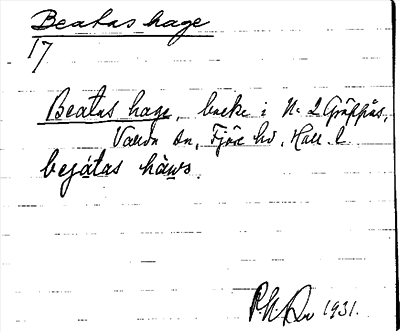 Beatas hage
17
Beatas hage, backe i N. 2 Gräppås,
Vallda sn, Fjäre hd, Hall. l.
bejátas hàws.
1931.